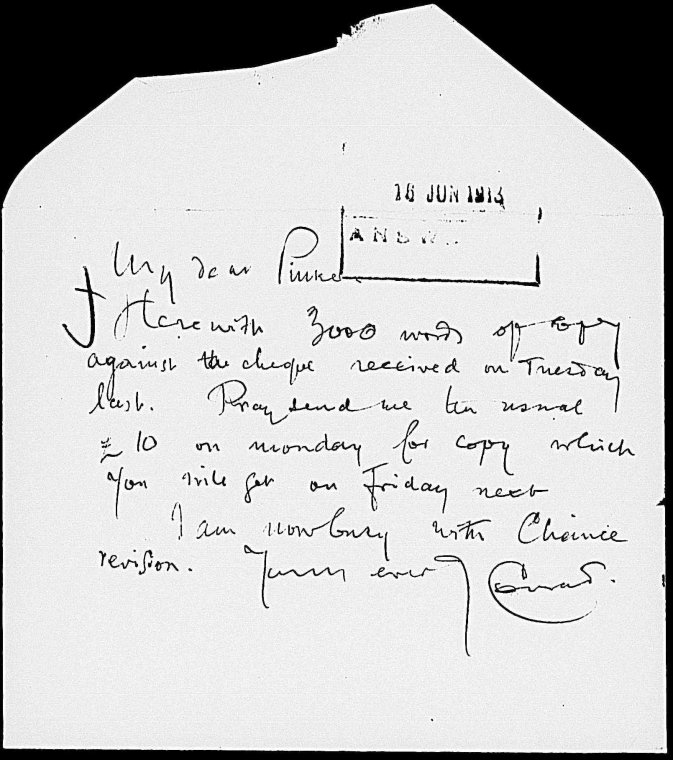 16 JUN 1913
ANSWD.
My dear Pinker
Herewith 3000 words of copy
against the cheque received on Tuesday
last. Pray send me the usual
£10 on monday for copy which
you will get on Friday next
I am now busy with Chance
revision. Yours ever J Conrad.